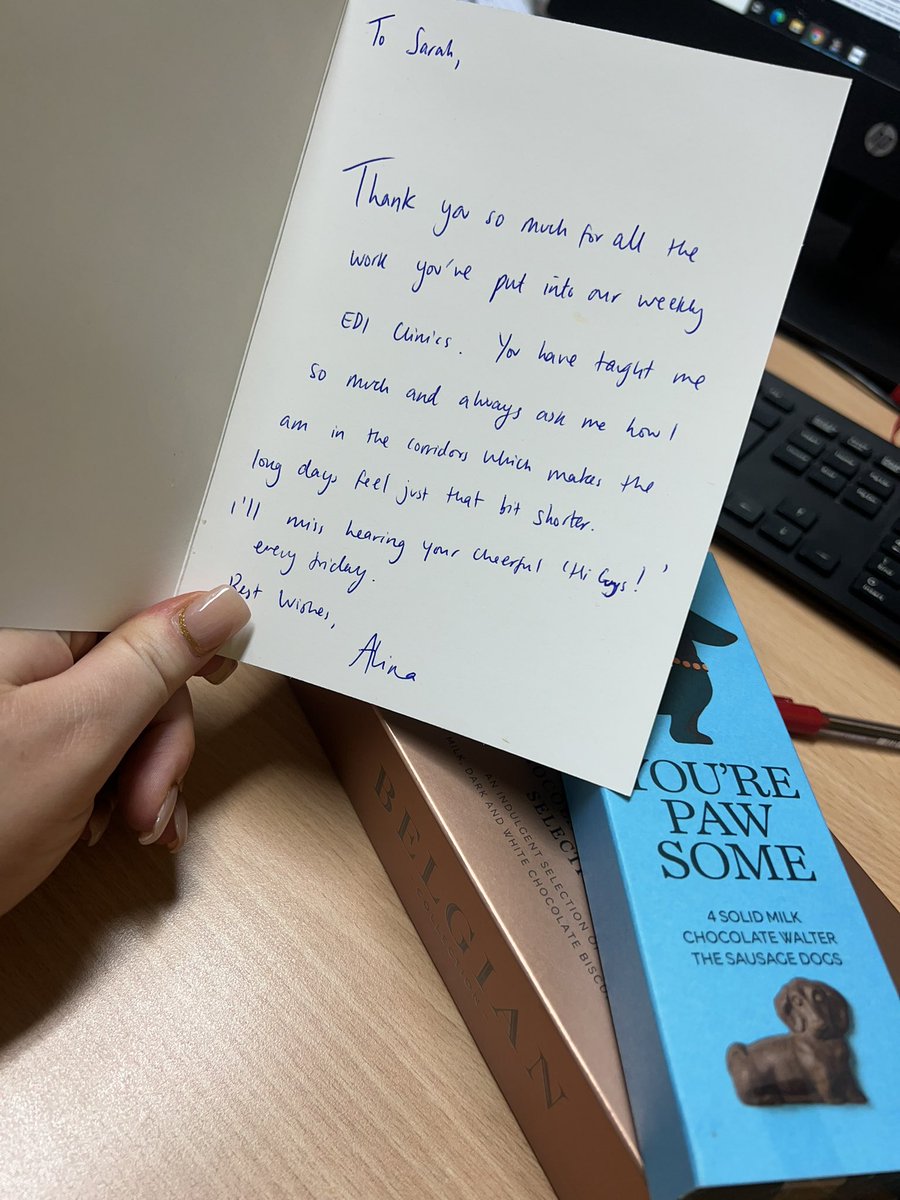 To Sarah,
Thank you so much for all the
work you've put into our weekly
EDI Clinics. You have taught me
so much and always ask me how I
am in the corridors which makes the
long days feel just that bit shorter.
I'll miss hearing your cheerful 'Hi Guys!'
every friday.
Best Wishes,
Alina
hp
BELGIAN
COLLECTION
SELECTI
AN INDULGENT SELECTION OF
MILK, DARK AND WHITE CHOCOLATE BISCU
YOU'RE
PAW
SOME
4 SOLID MILK
CHOCOLATE WALTER
THE SAUSAGE DOGS